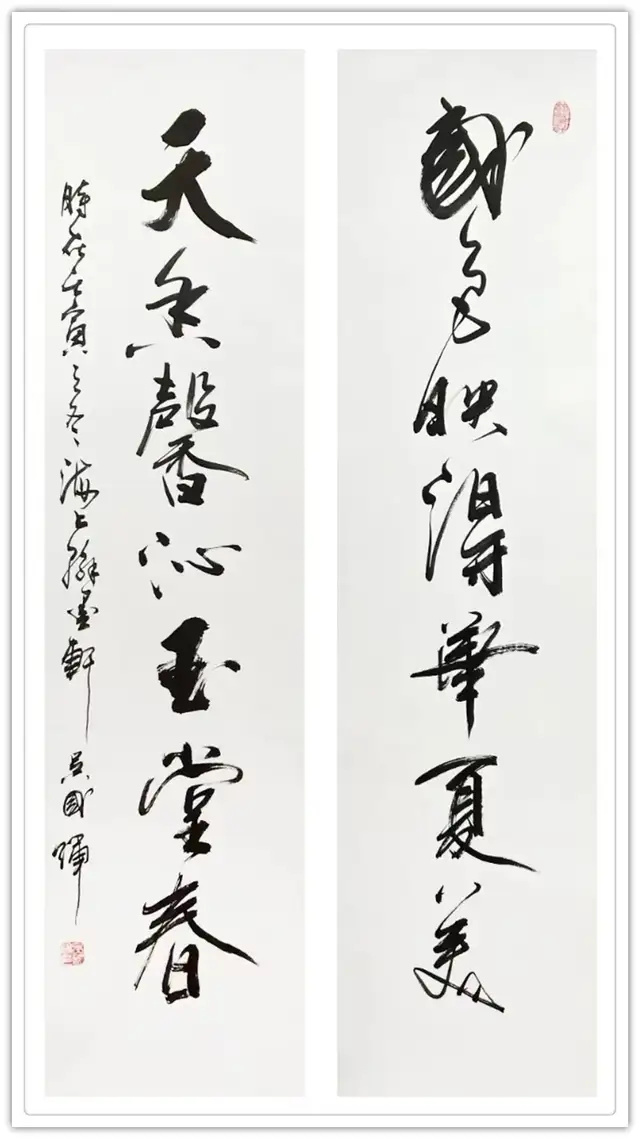 國色映得華夏美
天香馨沁玉堂春
時在壬寅之冬海上翰墨軒吳國輝